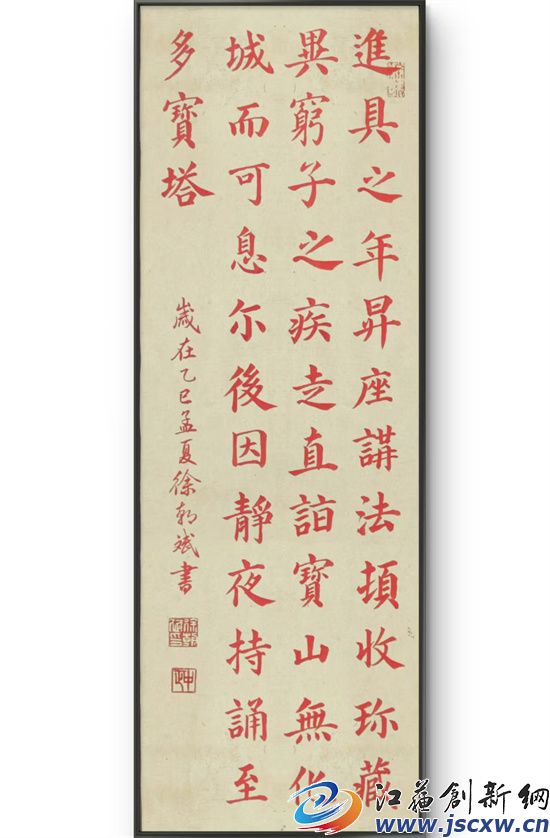 進具之年昇座講法頓收珎藏
異窮子之疾走直詣寶山無化
城而可息尔後因靜夜持誦至
多寶塔
歲在乙巳孟夏徐斌書
江蘇創新網
www.jscxw.cn